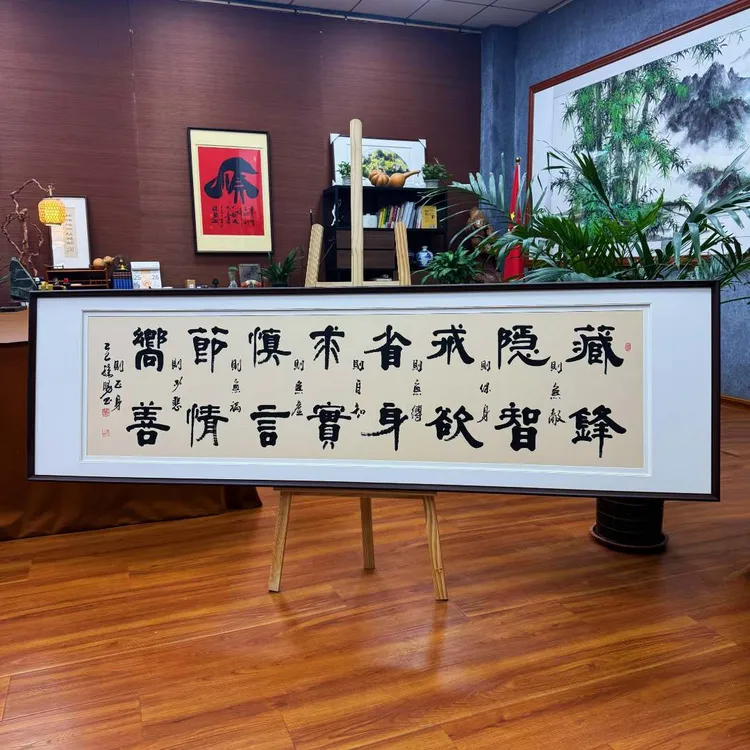 藏鋒
則無敵
隐智
則保身
戒欲
則無縛
省身
則自知
求實
則無虛
慎言
則無禍
節情
則少
嚮善
則正身
乙巳